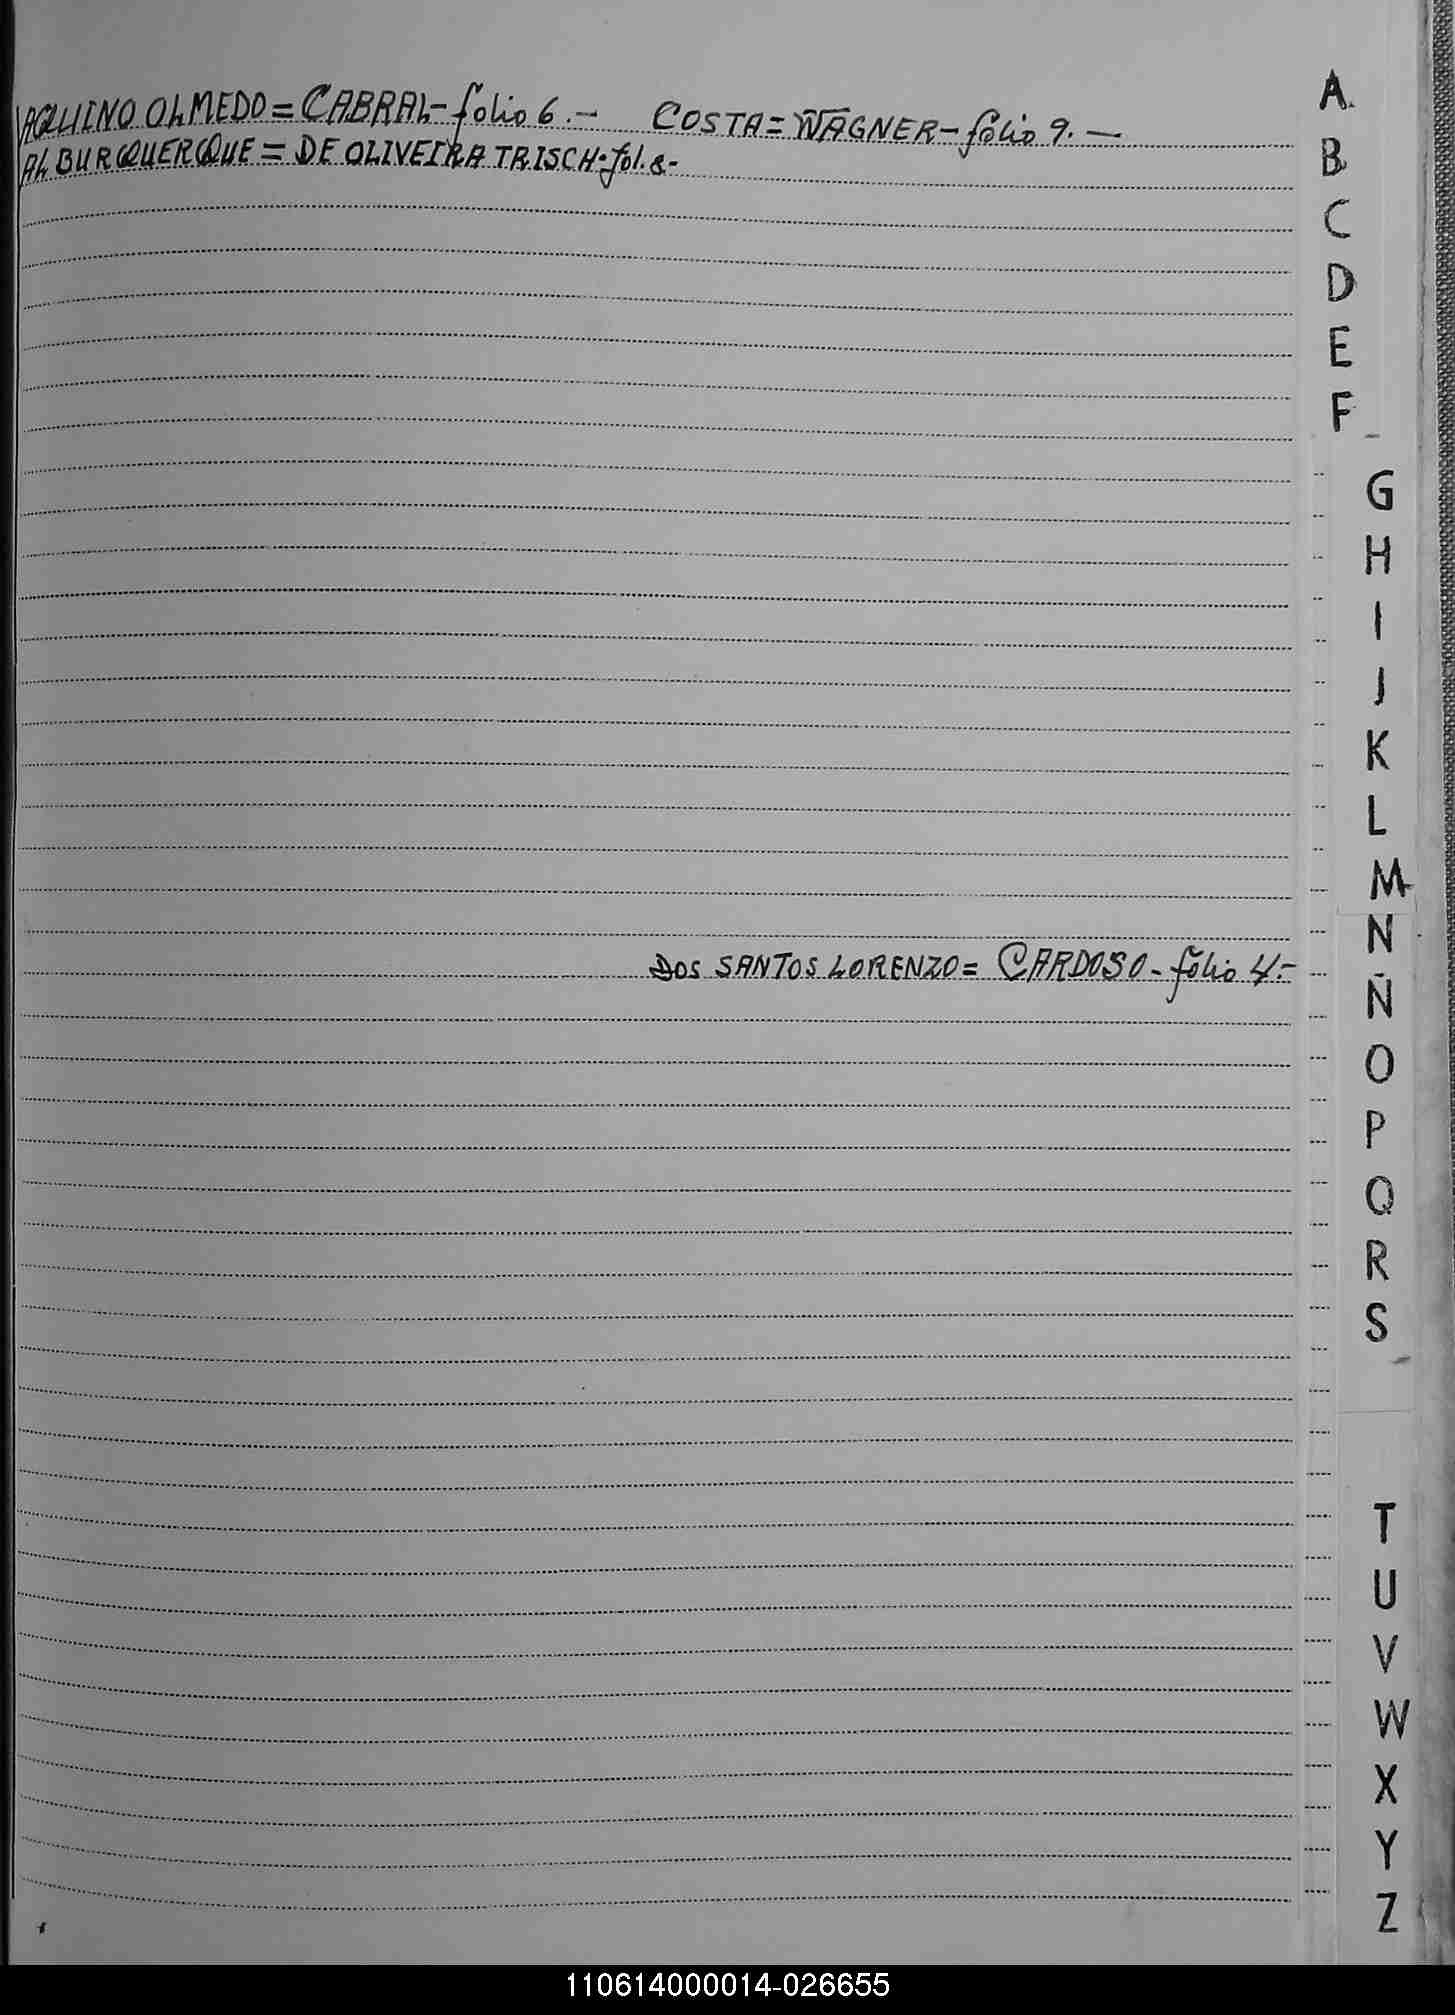 AQUINO OLMEDO = CABRAL - folio 6.- COSTA = WAGNER - folio 9. —
ALBURQUERQUE = DE OLIVEIRA TRISCH - fol. 8-
DOS SANTOS LORENZO = CARDOSO - folio 4.-
A
B
C
D
E
F
G
H
I
J
K
L
M
N
Ñ
O
P
Q
R
S
T
U
V
W
X
Y
Z
110614000014-026655